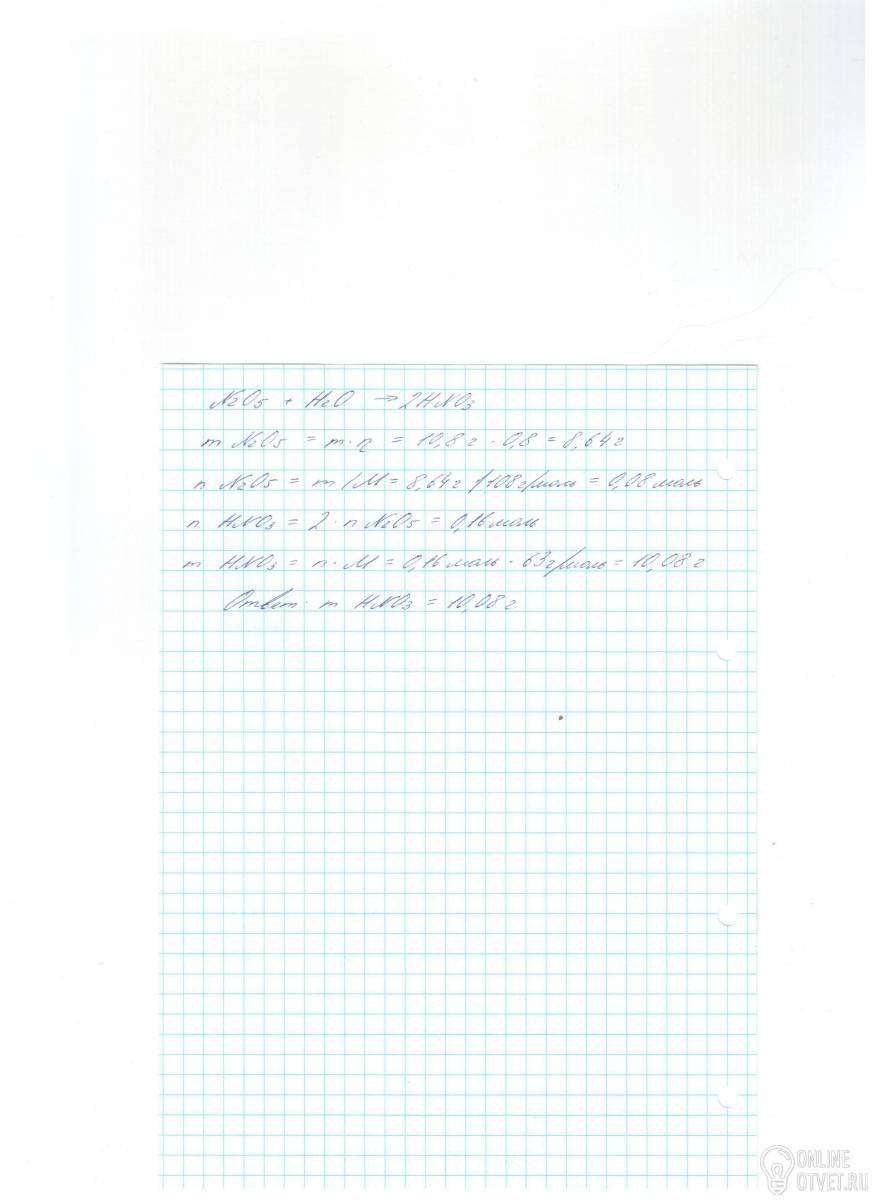 N2O5 + H2O → 2HNO3
m N2O5 = m·η = 10,8 г · 0,8 = 8,64 г
n N2O5 = m/M = 8,64 г /108 г/моль = 0,08 моль
n HNO3 = 2 · n N2O5 = 0,16 моль
m HNO3 = n · M = 0,16 моль · 63 г/моль = 10,08 г
Ответ: m HNO3 = 10,08 г
ONLINE
OTVET.RU